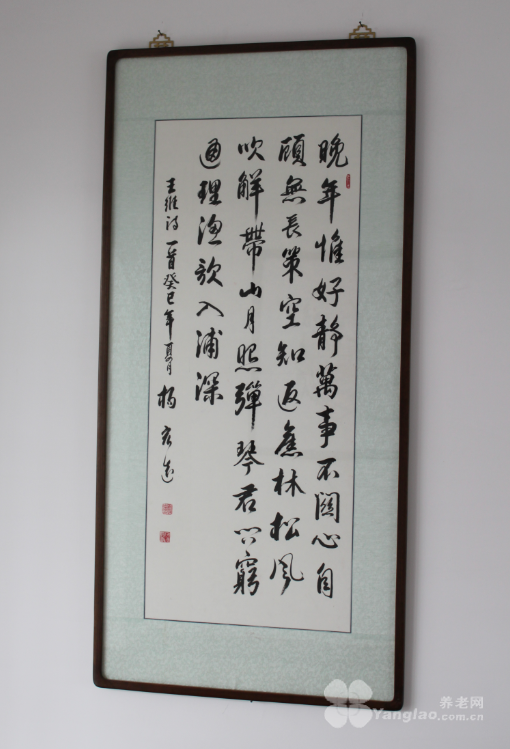 晚年惟好靜萬事不關心自
顧無長策空知返舊林松風
吹解帶山月照彈琴君問窮
通理漁歌入浦深
王維詩一首癸巳年夏月楊
养老网
Yanglao.com.cn